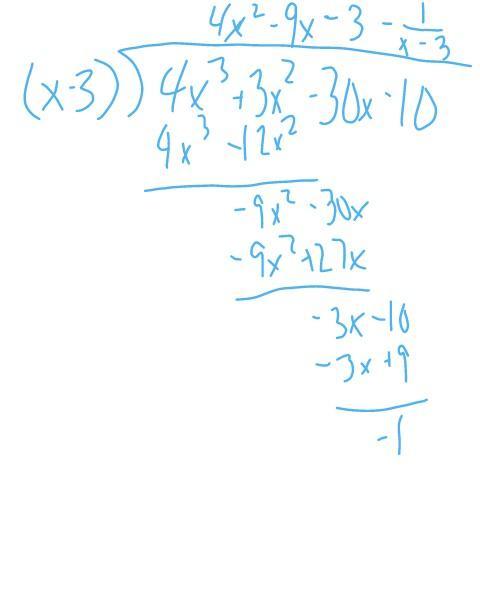 4x² - 9x - 3 - 1/(x - 3)
(x-3)) 4x³ + 3x² - 30x - 10
4x³ - 12x²
-9x² - 30x
-9x² + 27x
-3x - 10
-3x + 9
-1